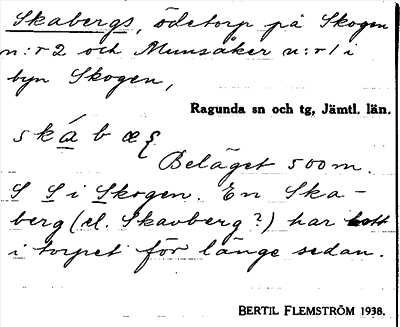 Skabergs, ödetorp på Skogen
n:r 2 och Munsåker n:r 1 i
byn Skogen,
Ragunda sn och tg, Jämtl. län.
skábæ
Beläget 500 m.
S S i Skogen. En Ska-
berg (el. Skavberg?) har bott
i torpet för länge sedan.
BERTIL FLEMSTRÖM 1938.